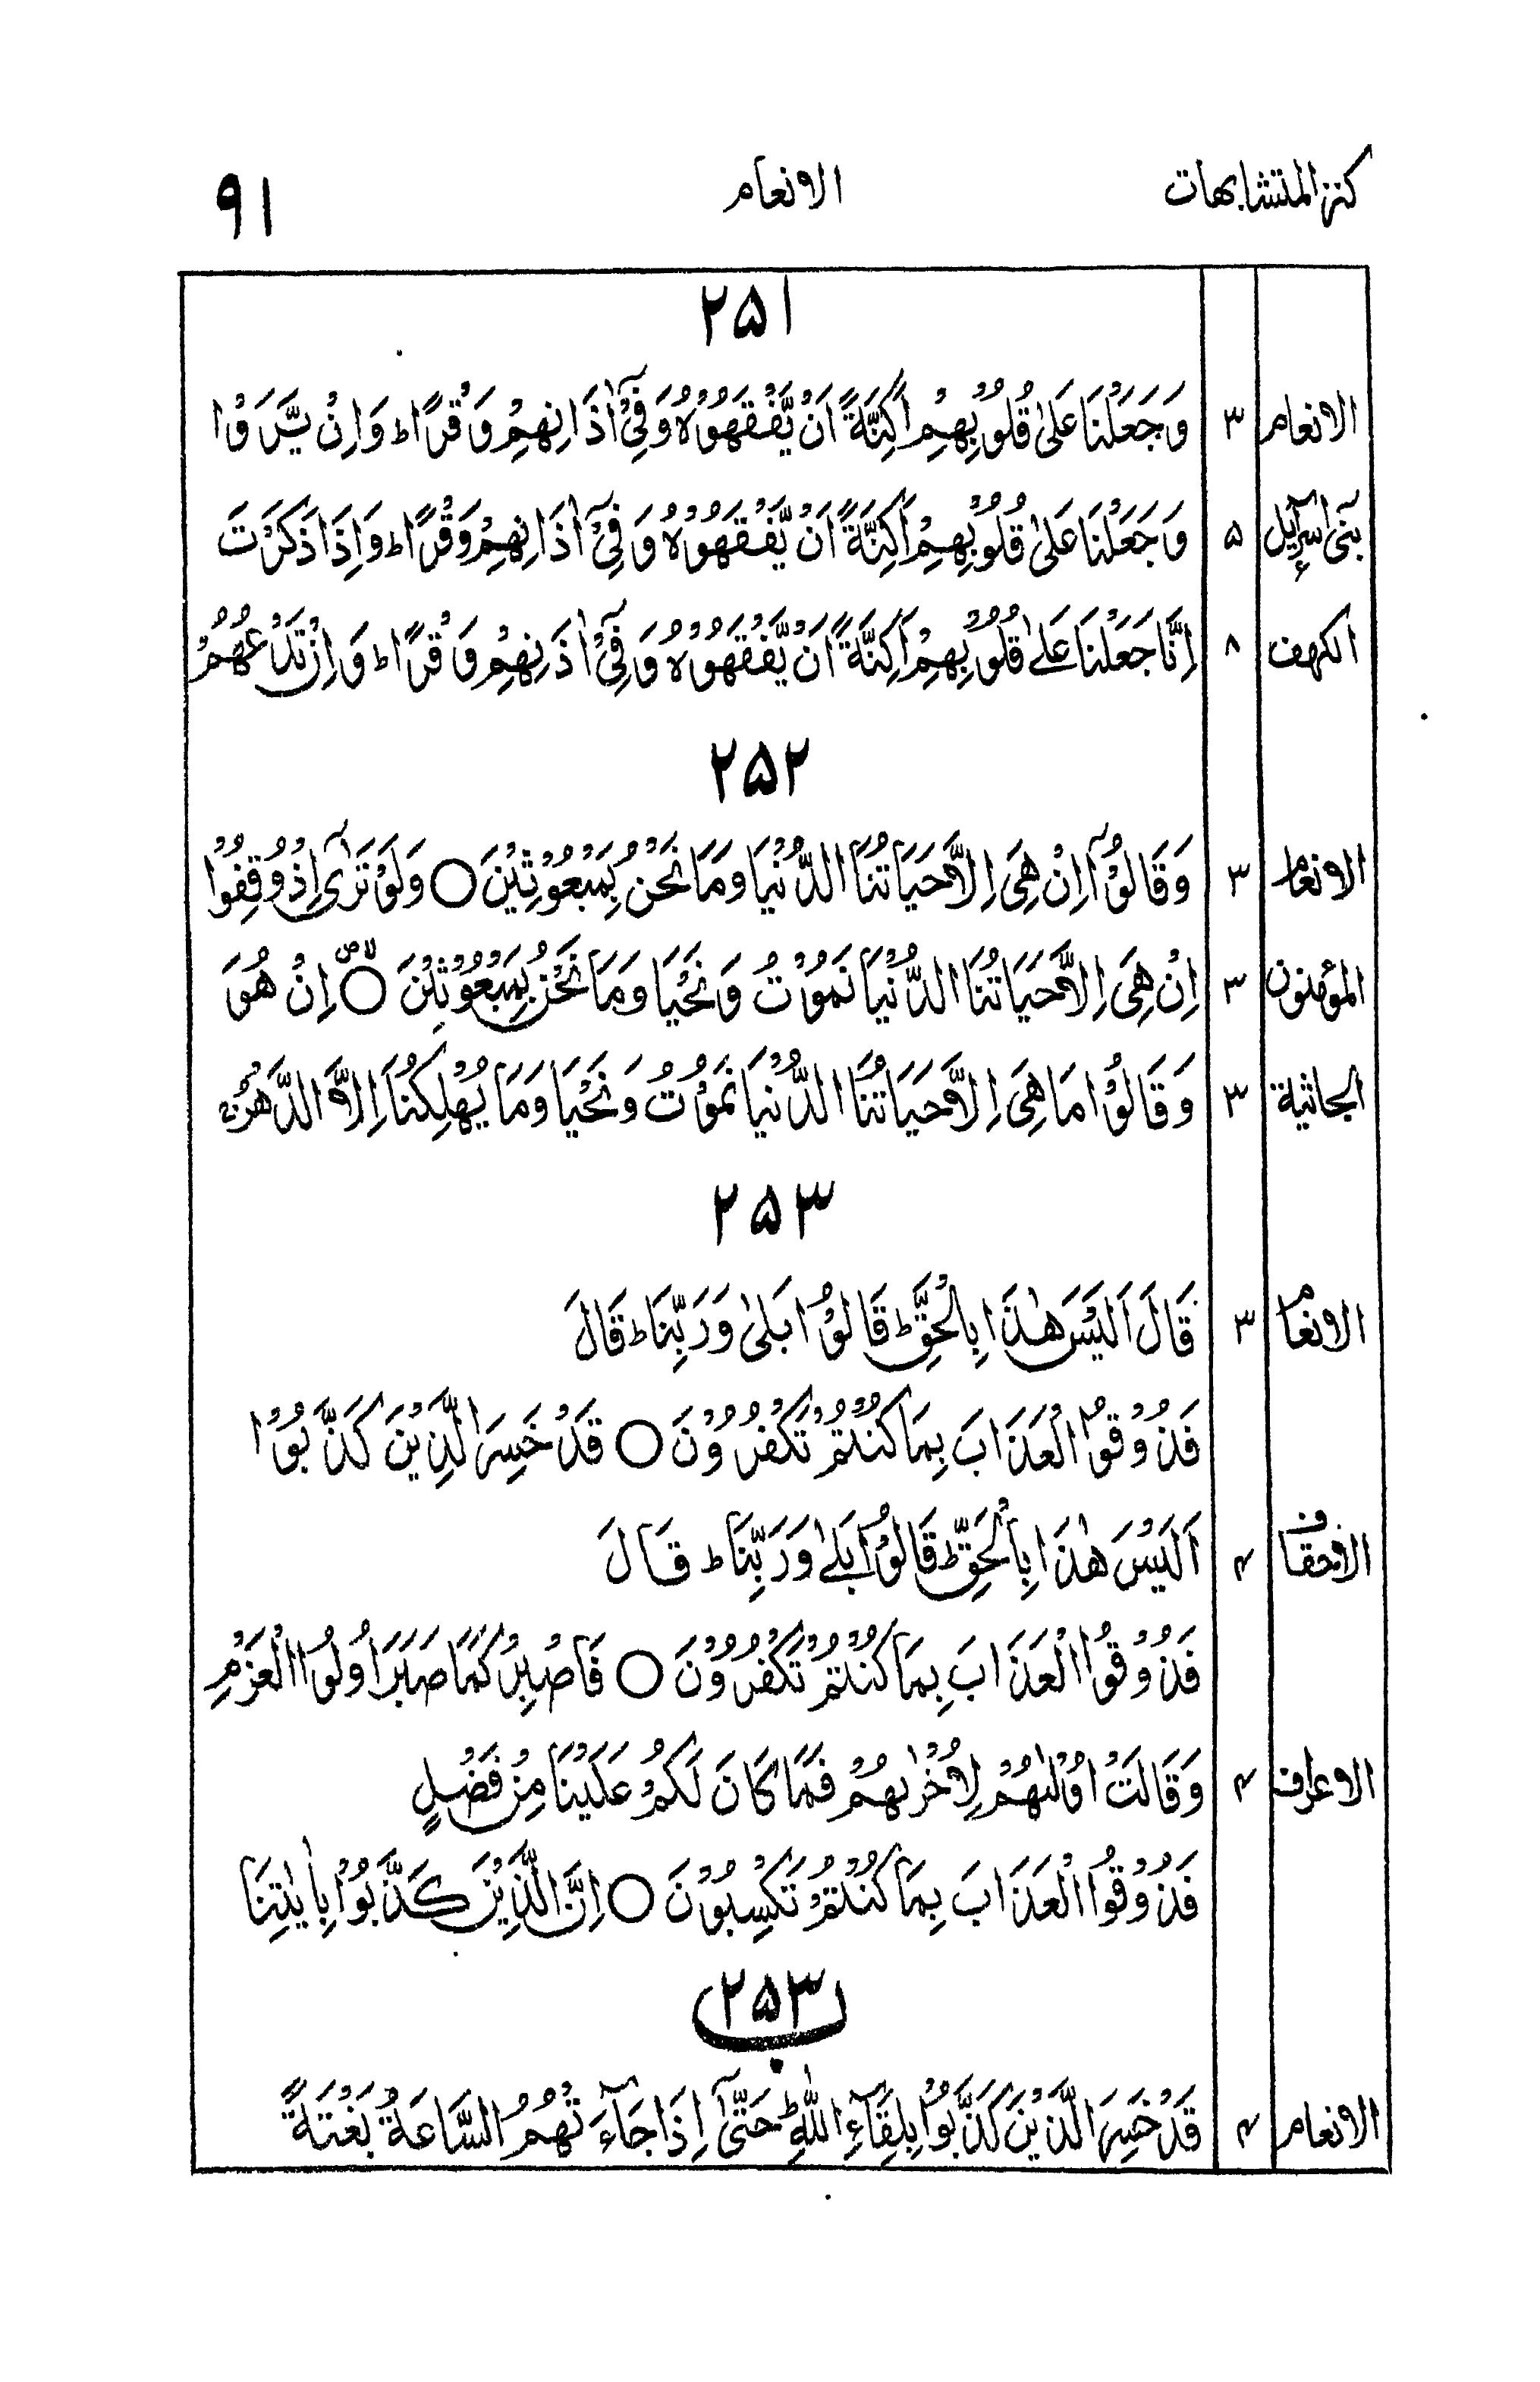 كنز المتشابهات الانعام ٩١
٢٥١
الانعام ٣ وَجَعَلْنَا عَلٰى قُلُوْبِهِمْ اَكِنَّةً اَنْ يَّفْقَهُوْهُ وَفِيْٓ اٰذَانِهِمْ وَقْرًا ؕ وَاِنْ يَّرَوْا
بنی اسرآءیل ۵ وَجَعَلْنَا عَلٰى قُلُوْبِهِمْ اَكِنَّةً اَنْ يَّفْقَهُوْهُ وَفِيْٓ اٰذَانِهِمْ وَقْرًا ؕ وَاِذَا ذَكَرْتَ
الكهف ٨ اِنَّا جَعَلْنَا عَلٰى قُلُوْبِهِمْ اَكِنَّةً اَنْ يَّفْقَهُوْهُ وَفِيْٓ اٰذَنِهِمْ وَقْرًا ؕ وَاِنْ تَدْعُهُمْ
٢٥٢
الانعام ٣ وَقَالُوْٓا اِنْ هِيَ اِلَّا حَيَاتُنَا الدُّنْيَا وَمَا نَحْنُ بِمَبْعُوْثِيْنَ ○ وَلَوْ تَرٰٓى اِذْ وُقِفُوْا
المؤمنون ٣ اِنْ هِيَ اِلَّا حَيَاتُنَا الدُّنْيَا نَمُوْتُ وَنَحْيَا وَمَا نَحْنُ بِمَبْعُوْثِيْنَ ○ اِنْ هُوَ
الجاثية ٣ وَقَالُوْا مَا هِيَ اِلَّا حَيَاتُنَا الدُّنْيَا نَمُوْتُ وَنَحْيَا وَمَا يُهْلِكُنَا اِلَّا الدَّهْرُ
٢٥٣
الانعام ٣ قَالَ اَلَيْسَ هٰذَا بِالْحَقِّ ؕ قَالُوْا بَلٰى وَرَبِّنَا ؕ قَالَ
فَذُوْقُوا الْعَذَابَ بِمَا كُنْتُمْ تَكْفُرُوْنَ ○ قَدْ خَسِرَ الَّذِيْنَ كَذَّبُوْا
الاحقاف ۴ اَلَيْسَ هٰذَا بِالْحَقِّ ؕ قَالُوْا بَلٰى وَرَبِّنَا ؕ قَالَ
فَذُوْقُوا الْعَذَابَ بِمَا كُنْتُمْ تَكْفُرُوْنَ ○ فَاصْبِرْ كَمَا صَبَرَ اُولُوا الْعَزْمِ
الاعراف ۴ وَقَالَتْ اُوْلٰىهُمْ لِاُخْرٰىهُمْ فَمَا كَانَ لَكُمْ عَلَيْنَا مِنْ فَضْلٍ
فَذُوْقُوا الْعَذَابَ بِمَا كُنْتُمْ تَكْسِبُوْنَ ○ اِنَّ الَّذِيْنَ كَذَّبُوْا بِاٰيٰتِنَا
٢٥٣ ب
الانعام ۴ قَدْ خَسِرَ الَّذِيْنَ كَذَّبُوْا بِلِقَآءِ اللّٰهِ ؕ حَتّٰىٓ اِذَا جَآءَتْهُمُ السَّاعَةُ بَغْتَةً